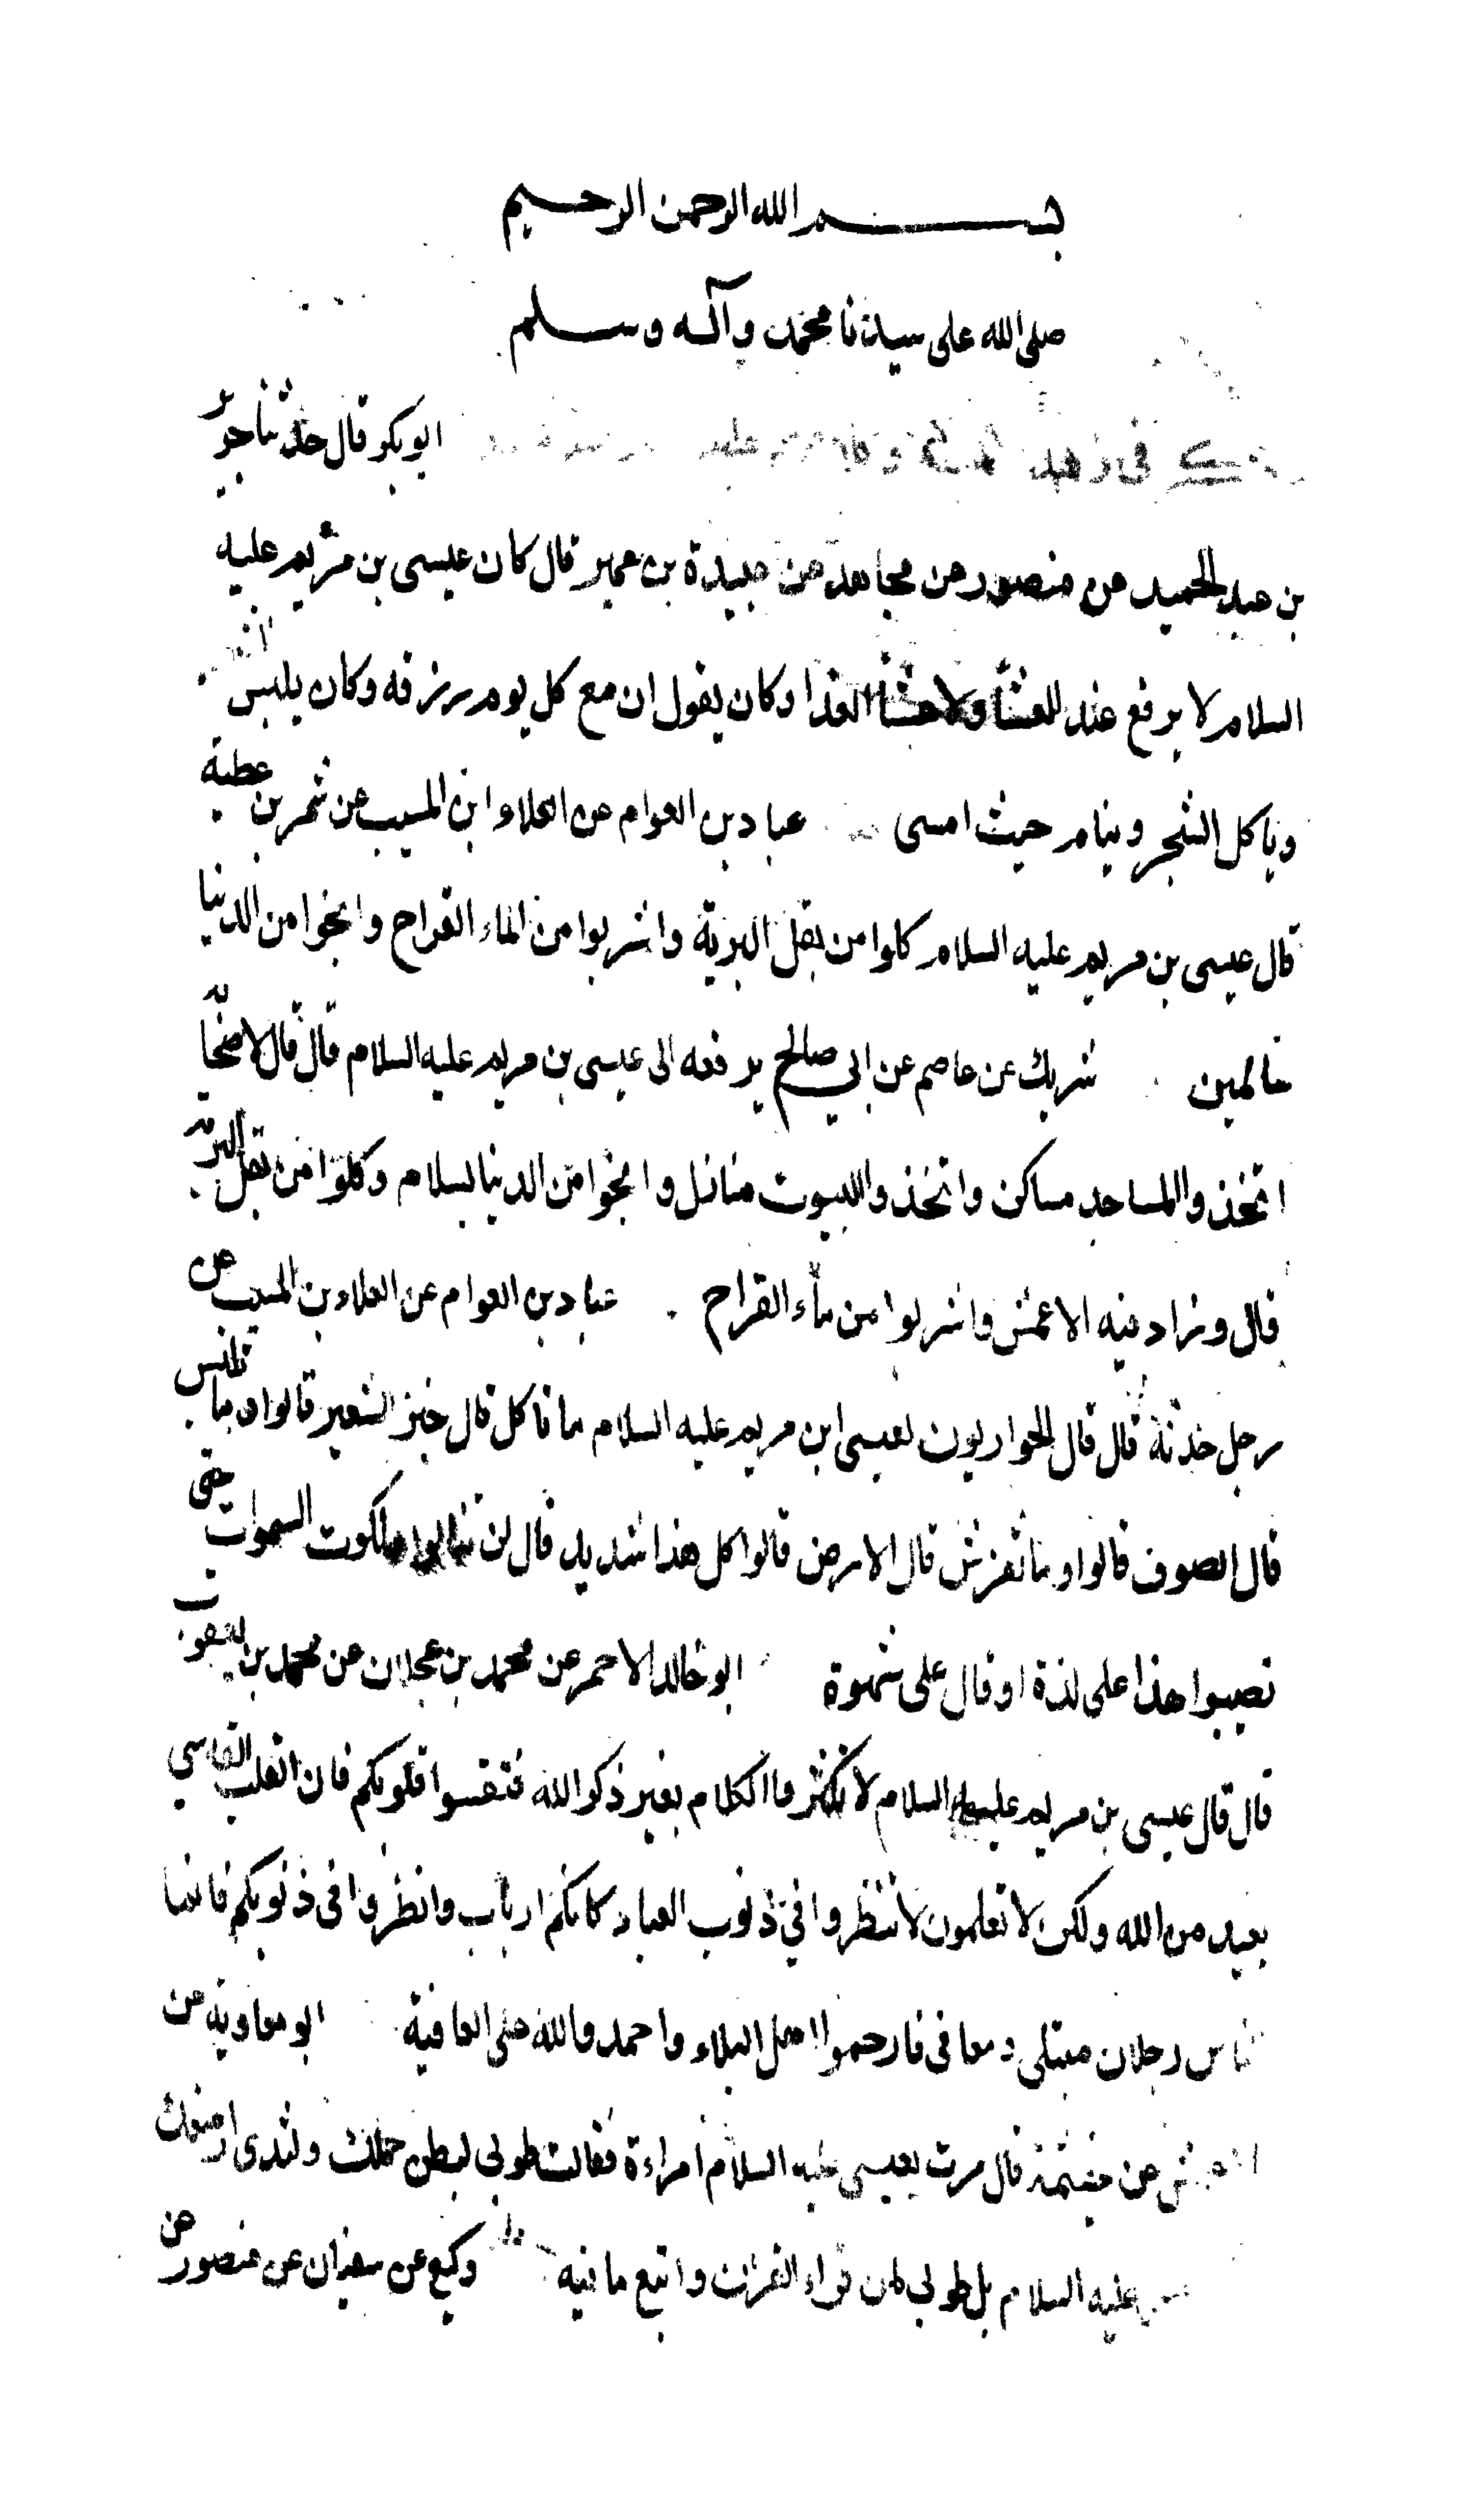 بسم الله الرحمن الرحيم
صلى الله على سيدنا محمد وآله وسلم
في زهد ابو بكر قال حدثنا جرير
بن عبد الحميد عن منصور عن مجاهد عن عبيدة بن عمير قال كان عيسى بن مريم عليه
السلام لا يرفع عشاء لغداء ولا غداء وكان يقول ان مع كل يوم رزقه وكان يلبس الشعر
وياكل الشجر وينام حيث امسى عباد بن العوام عن العلاء ابن المسيب عن شمر بن عطية
قال عيسى بن مريم عليه السلام كلوا من بقل البرية واشربوا من الماء القراح وانجوا من الدنيا
سالمين شريك عن عاصم عن ابي صالح يرفعه الى عيسى بن مريم عليه السلام قال قال لاصحابه
اتخذوا المساجد مساكن واتخذوا البيوت منازل وانجوا من الدنيا بسلام وكلوا من بقل البرية
قال وزاد فيه الاعمش واشربوا من ماء القراح عباد بن العوام عن العلاء بن المسيب عن
رجل حدثه قال قال الحواريون لعيسى ابن مريم عليه السلام ما تاكل قال خبز الشعير قالوا وما تلبس
قال الصوف قالوا وما تفترش قال الارض قالوا كل هذا شديد قال لن تنالوا ملكوت السموات حتى
تصيبوا هذا على لذة او قال على شهوة ابو خالد الاحمر عن محمد بن عجلان عن محمد بن يعقوب
قال قال عيسى بن مريم عليه السلام لا تكثروا الكلام بغير ذكر الله فتقسوا قلوبكم فان القلب القاسي
بعيد من الله ولكن لا تعلمون لا تنظروا في ذنوب العباد كانكم ارباب وانظروا في ذنوبكم فانما
الناس رجلان مبتلى ومعافى فارحموا اهل البلاء واحمدوا الله على العافية ابو معاوية عن
الاعمش عن خيثمة قال مرت بعيسى عليه السلام امراءة فقالت طوبى لبطن حملك ولثدى ارضعك
عليه السلام بل طوبى لمن قراء القران واتبع ما فيه وكيع عن سفيان عن منصور عن